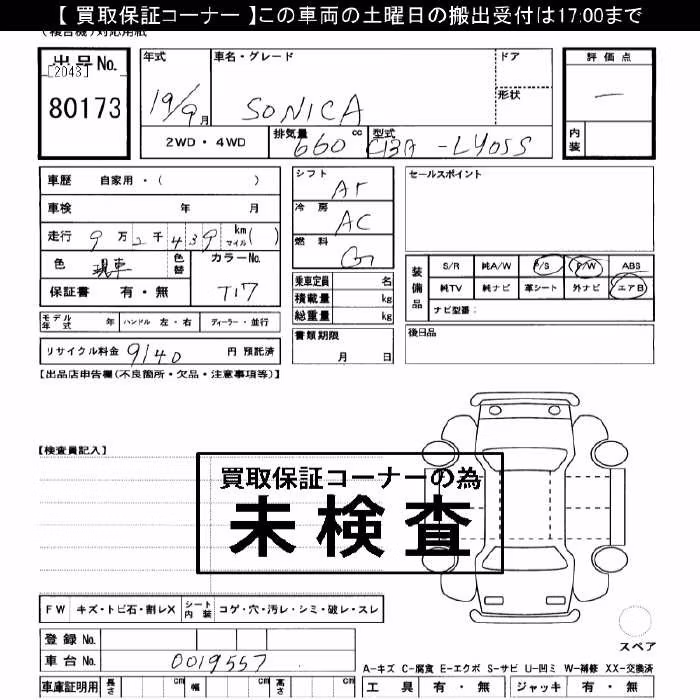 【 買取保証コーナー 】この車両の土曜日の搬出受付は17:00まで
(複合機)対応用紙
出品No.
[2043]
80173
年式
19/9月
車名・グレード
SONICA
ドア
形状
評価点
—
内装
2WD・4WD
排気量
660 cc
型式
車歴 自家用・( )
車検 年 月
走行 9万2千439 km マイル( )
色 現車
色替
カラーNo.
T17
保証書 有・無
シフト
AT
冷房
AC
燃料
G
乗車定員 名
積載量 kg
総重量 kg
書類期限
月 日
セールスポイント
装備品
S/R 純A/W P/S P/W ABS
純TV 純ナビ 革シート 外ナビ エアB
ナビ型番:
後日品
モデル年式 年 ハンドル 左・右 ディーラー・並行
リサイクル料金 9140 円 預託済
【出品店申告欄(不良箇所・欠品・注意事項等)】
【検査員記入】
買取保証コーナーの為
未検査
FW キズ・トビ石・割レX シート内装 コゲ・穴・汚レ・シミ・破レ・スレ
スペア
登録 No.
車台 No. 0019557
A-キズ C-腐食 E-エクボ S-サビ U-凹ミ W-補修 XX-交換済
車庫証明用 長さ cm 幅 cm 高さ cm
工具 有・無 ジャッキ 有・無